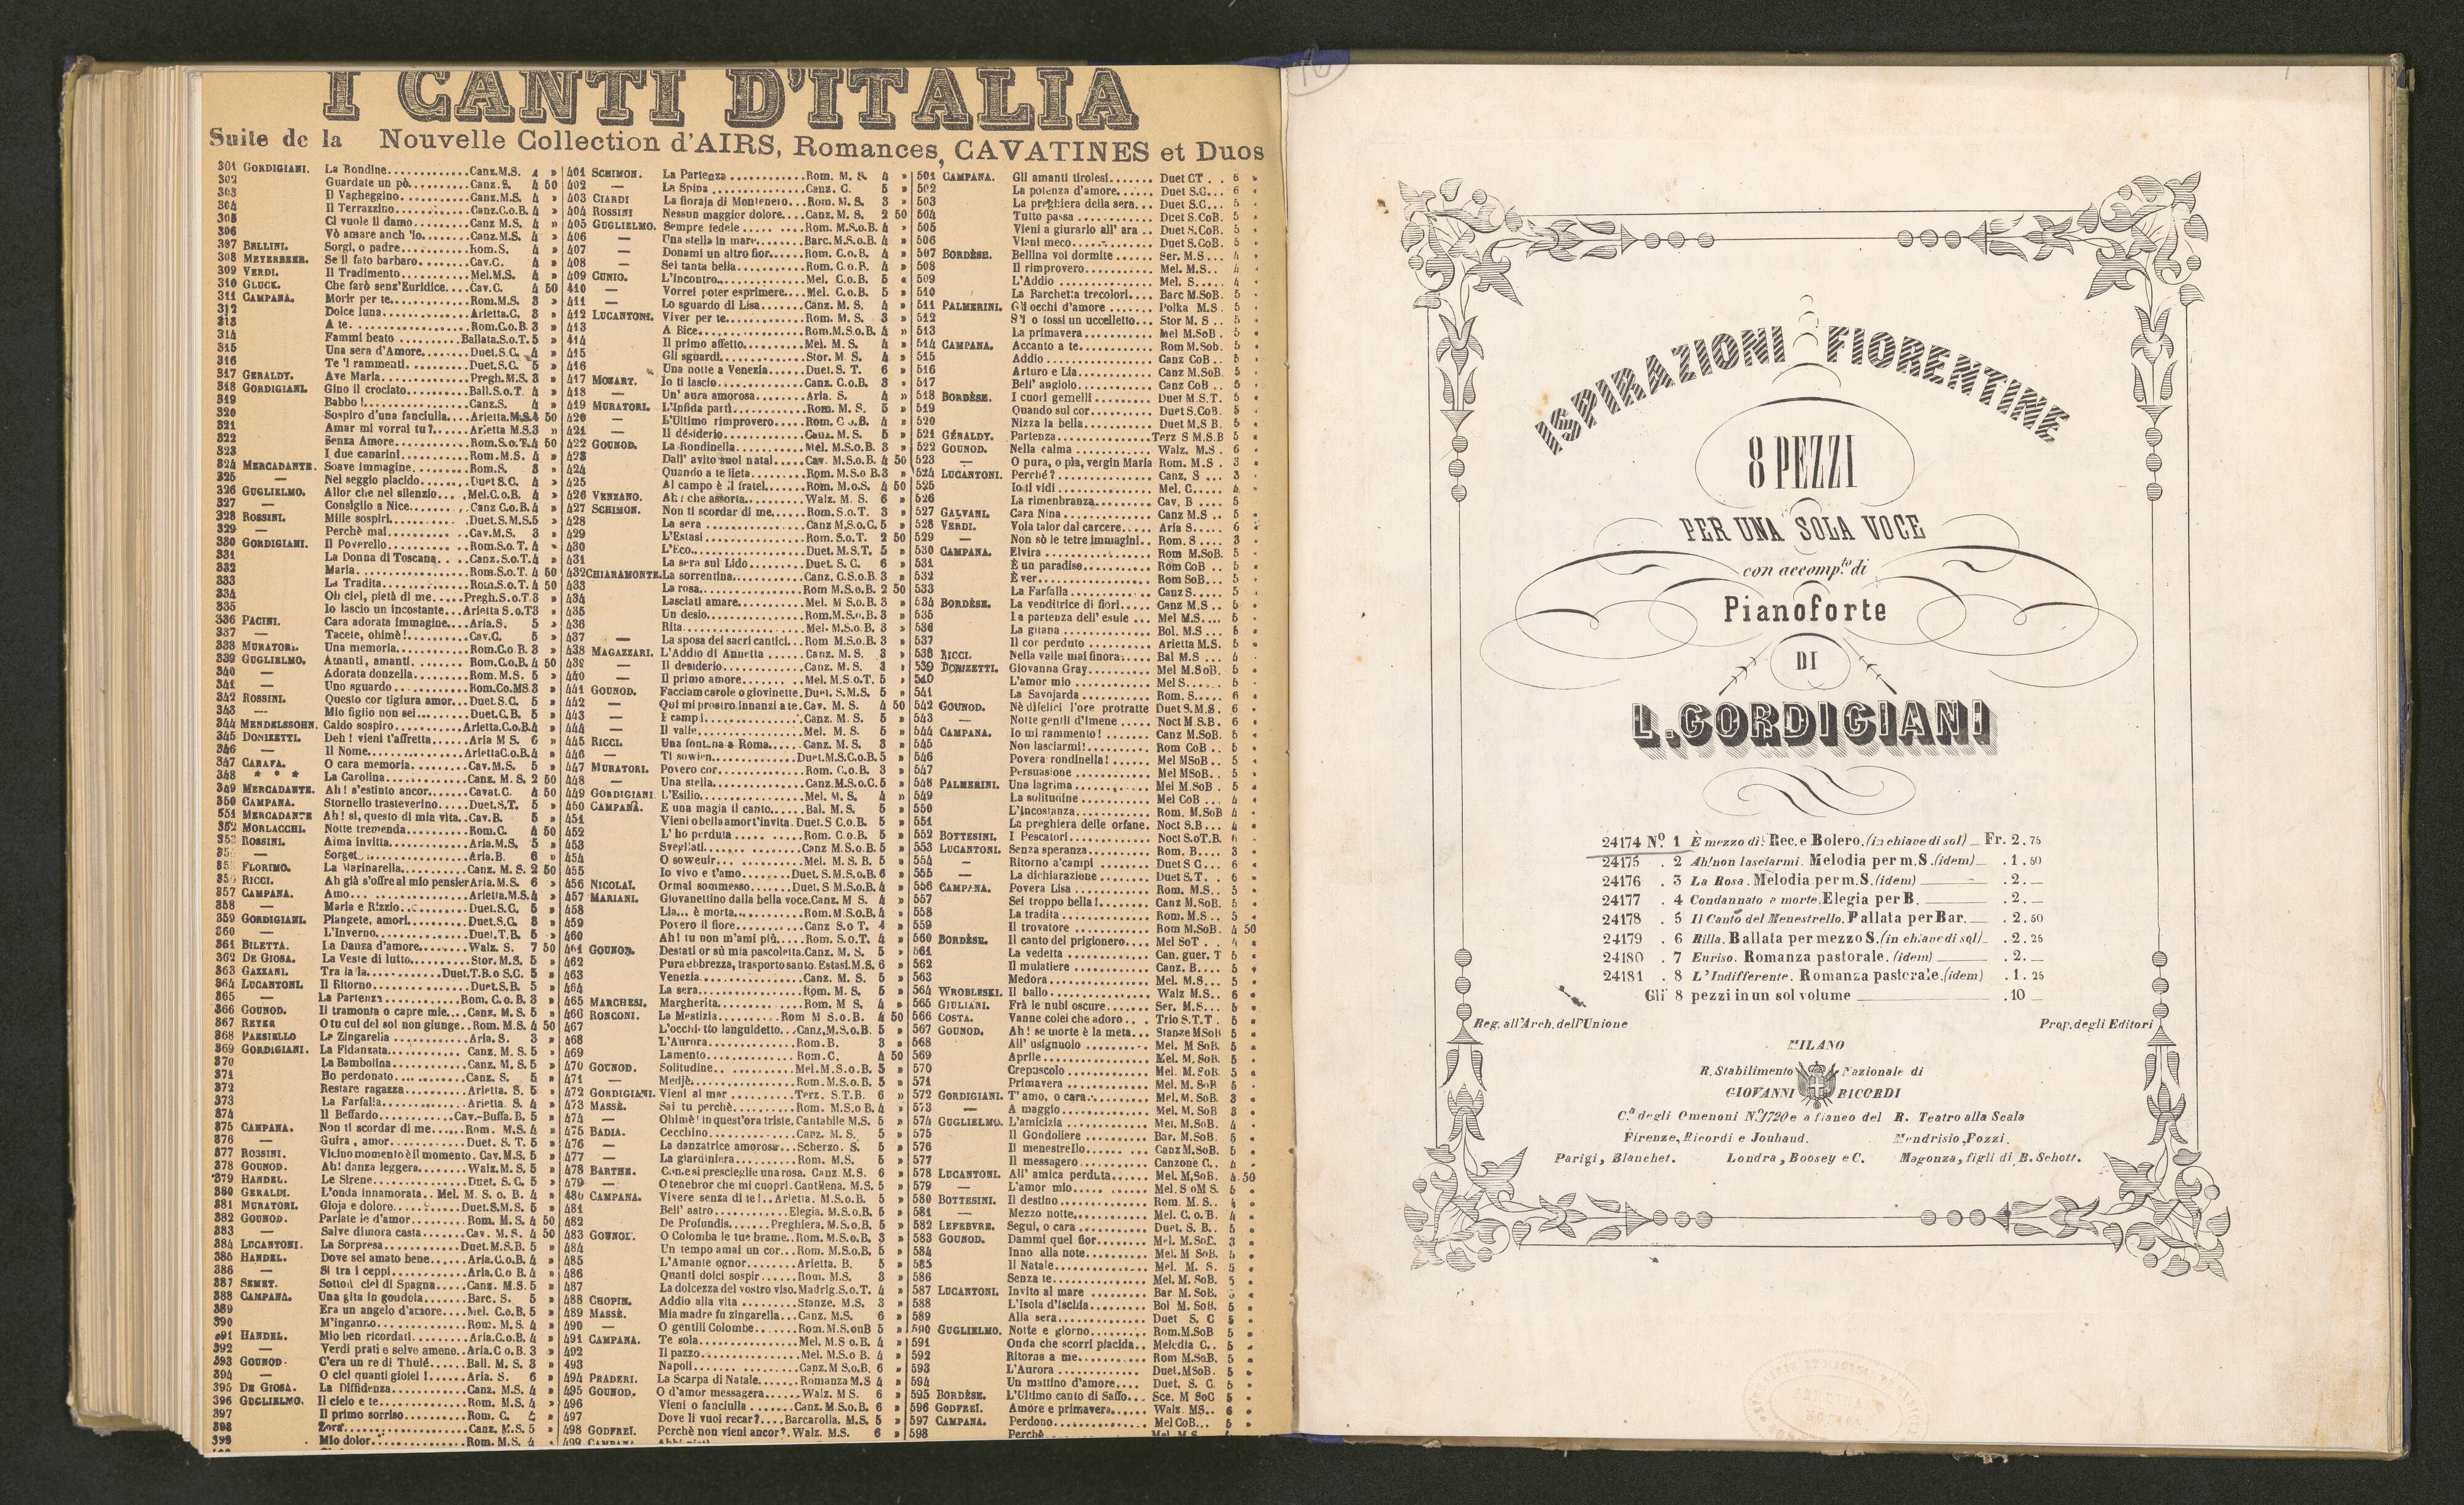 I CANTI D'ITALIA
Suite de la Nouvelle Collection d'AIRS, Romances, CAVATINES et Duos
301 GORDIGIANI. La Rondine Canz.M.S. 4 »
302 Guardate un pò Canz.S. 4 50
303 Il Vagheggino Canz.M.S. 4 »
304 Il Terrazzino Canz.C.o.B. 4 »
305 Ci vuole il damo Canz M.S. 4 »
306 Vò amare anch 'io Canz.M.S. 4 »
307 BELLINI. Sorgi, o padre Rom.S. 4 »
308 MEYERBEER. Se il fato barbaro Cav.C. 4 »
309 VERDI. Il Tradimento Mel.M.S. 4 »
310 GLUCK. Che farò senz'Euridice Cav.C. 4 50
311 CAMPANA. Morir per te Rom.M.S. 3 »
312 Dolce luna Arietta.C. 3 »
313 A te Rom.C.o.B. 3 »
314 Fammi beato Ballata.S.o.T. 5 »
315 Una sera d'Amore Duet.S.C. 4 »
316 Te 'l rammenti Duet.S.C. 5 »
317 GERALDY. Ave Maria Pregh.M.S. 3 »
318 GORDIGIANI. Gino il crociato Ball.S.o.T. 4 »
319 Babbo ! Canz.S. 4 »
320 Sospiro d'una fanciulla Arietta.M.S. 4 50
321 Amar mi vorrai tu? Arietta M.S. 3 »
322 Senza Amore Rom.S.o.T. 4 50
323 I due canarini Rom.M.S. 4 »
324 MERCADANTE. Soave immagine Rom.S. 3 »
325 — Nel seggio placido Duet S.C. 4 »
326 GUGLIELMO. Allor che nel silenzio Mel.C.o.B. 4 »
327 — Consiglio a Nice Canz C.o.B. 4 »
328 ROSSINI. Mille sospiri Duet.S.M.S. 5 »
329 — Perchè mai Cav.M.S. 3 »
330 GORDIGIANI. Il Poverello Rom.S.o.T. 4 »
331 La Donna di Toscana Canz.S.o.T. 4 »
332 Maria Rom.S.o.T. 4 50
333 La Tradita Rom.S.o.T. 4 50
334 Oh ciel, pietà di me Pregh.S.o.T 3 »
335 Io lascio un incostante Arietta S.o.T 3 »
336 PACINI. Cara adorata immagine Aria.S. 5 »
337 — Tacete, ohimè! Cav.C. 5 »
338 MURATORI. Una memoria Rom.C.o.B. 3 »
339 GUGLIELMO. Amanti, amanti Rom.C.o.B. 4 50
340 — Adorata donzella Rom.M.S. 5 »
341 — Uno sguardo Rom.Co.MS. 3 »
342 ROSSINI. Questo cor tigiura amor Duet.S.C. 5 »
343 — Mio figlio non sei Duet.C.B. 5 »
344 MENDELSSOHN. Caldo sospiro Arietta.C.o.B. 4 »
345 DONIZETTI. Deh ! vieni t'affretta Aria M S. 6 »
346 — Il Nome Arietta C.o.B. 4 »
347 CARAFA. O cara memoria Cav.M.S. 5 »
348 * * * La Carolina Canz. M. S. 2 50
349 MERCADANTE. Ah ! s'estinto ancor Cavat.C. 4 50
350 CAMPANA. Stornello trasteverino Duet.S.T. 5 »
551 MERCADANTE Ah ! sì, questo di mia vita Cav.B. 5 »
352 MORLACCHI. Notte tremenda Rom.C. 4 50
353 ROSSINI. Alma invitta Aria.M.S. 5 »
— Sorget Aria.B. 6 »
355 FLORIMO. La Marinarella Canz. M. S. 2 50
356 RICCI. Ah già s'offre al mio pensier Aria.M.S. 6 »
357 CAMPANA. Amo Arietta.M.S. 4 »
358 — Maria e Rizzio Duet.S.C. 5 »
359 GORDIGIANI. Piangete, amori Duet.S.C. 3 »
360 — L'Inverno Duet.T.B. 5 »
361 BILETTA. La Danza d'amore Walz. S. 7 50
362 DE GIOSA. La Veste di lutto Stor. M.S. 5 »
363 GAZZANI. Tra la la Duet.T.B.o S.C. 5 »
364 LUCANTONI. Il Ritorno Duet.S.B. 5 »
365 — La Partenza Rom. C.o.B. 3 »
366 GOUNOD. Il tramonta o capre mie Canz. M.S. 5 »
367 REYER O tu cui del sol non giunge Rom. M.S. 4 50
368 PAESIELLO La Zingarella Aria. S. 3 »
369 GORDIGIANI. La Fidanzata Canz. M. S. 5 »
370 La Bambolina Canz. M. S. 5 »
371 Ho perdonato Canz. S. 5 »
372 Restare ragazza Arietta. S. 5 »
373 La Farfalla Arietta. S. 4 »
374 Il Beffardo Cav.-Buffa.B. 5 »
375 CAMPANA. Non ti scordar di me Rom. M.S. 4 »
376 — Guira, amor Duet. S. T. 5 »
377 ROSSINI. Vicino momento è il momento. Cav.M.S. 5 »
378 GOUNOD. Ah! danza leggera Walz.M.S. 5 »
379 HANDEL. Le Sirene Duet. S. C. 5 »
380 GERALDI. L'onda innamorata Mel. M. S. o. B. 4 »
381 MURATORI. Gioja e dolore Duet.S.M.S. 5 »
382 GOUNOD. Parlate le d'amor Rom. M.S. 4 50
383 — Salve dimora casta Cav. M. S. 4 50
384 LUCANTONI. La Sorpresa Duet.M.S.B. 5 »
385 HANDEL. Dove sei amato bene Aria.C.o.B. 4 »
386 — Si tra i ceppi Aria.C.o B. 4 »
387 SEMET. Sotto il ciel di Spagna Canz. M.S. 5 »
388 CAMPANA. Una gita in gondola Barc. S. 5 »
389 Era un angelo d'amore Mel. C.o.B. 5 »
390 M'inganno Rom. M.S. 4 »
391 HANDEL. Mio ben ricordati Aria.C.o.B. 4 »
392 — Verdi prati e selve amene Aria.C o.B. 3 »
393 GOUNOD. C'era un re di Thulé Ball. M. S. 3 »
394 — O ciel quanti gioiel ! Aria. S. 6 »
395 DE GIOSA. La Diffidenza Canz. M.S. 4 »
396 GUGLIELMO. Il cielo e te Rom. M.S. 4 »
397 Il primo sorriso Rom. C.
398 Zora Canz. M.S. 5 »
399 Mio dolor Rom. M.S. 4
401 SCHIMON. La Partenza Rom. M. S. 4 »
402 — La Spina Canz. C. 5 »
403 CIARDI La fioraja di Montenero Rom. M. S. 3 »
404 ROSSINI Nessun maggior dolore Canz. M. S. 2 50
405 GUGLIELMO. Sempre fedele Rom. M.S.o.B. 4 »
406 — Una stella in mare Barc.M.S.o.B. 4 »
407 — Donami un altro fior Rom. C.o.B. 4 »
408 — Sei tanta bella Rom. C.o.B. 4 »
409 CUNIO. L'Incontro Mel. C.o.B. 5 »
410 — Vorrei poter esprimere Mel. C.o.B. 5 »
411 — Lo sguardo di Lisa Canz. M. S. 4 »
412 LUCANTONI. Viver per te Rom. M. S. 3 »
413 A Bice Rom.M.S.o.B. 4 »
414 Il primo affetto Mel. M. S. 4 »
415 Gli sguardi Stor. M. S. 4 »
416 Una notte a Venezia Duet. S. T. 6 »
417 MOZART. Io ti lascio Canz. C.o.B. 3 »
418 — Un' aura amorosa Aria. S. 4 »
419 MURATORI. L'Infida partì Rom. M. S. 5 »
420 — L'Ultimo rimprovero Rom. C.o.B. 4 »
421 — Il désiderio Canz. M. S. 5 »
422 GOUNOD. La Rondinella Mel. M.S.o.B. 3 »
423 Dall' avito suol natal Cav. M.S.o.B. 4 50
424 Quando a te lieta Rom. M.S.o B. 3 »
425 Al campo è il fratel Rom. M.o.S. 4 50
426 VENZANO. Ah ! che assorta Walz. M. S. 6 »
427 SCHIMON. Non ti scordar di me Rom. S.o.T. 3 »
428 La sera Canz M.S.o.C. 5 »
429 L'Estasi Rom. S.o.T. 2 50
430 L'Eco Duet. M.S.T. 5 »
431 La sera sul Lido Duet. S. C. 6 »
432 CHIARAMONTE. La sorrentina Canz. C.S.o.B. 3 »
433 La rosa Rom M.S.o.B. 2 50
434 Lasciati amare Mel. M S.o.B. 3 »
435 Un desio Rom.M.S.o.B. 3 »
436 Rita Mel. M.S.o.B. 3 »
437 — La sposa dei sacri cantici Rom M.S.o.B. 3 »
438 MAGAZZARI. L'Addio di Annetta Canz. M. S. 3 »
439 — Il desiderio Canz. M. S. 3
440 — Il primo amore Mel. M.S.o.T. 5 »
441 GOUNOD. Facciam carole o giovinette. Duet. S.M.S. 5 »
442 — Qui mi prostro innanzi a te. Cav. M. S. 4 50
443 — I campi Canz. M. S. 5 »
444 — Il valle Mel. M. S. 5 »
445 RICCI. Una fontana a Roma Canz. M. S. 3 »
446 — Ti sowien Duet.M.S.C.o.B. 5 »
447 MURATORI. Povero cor Rom. C.o.B. 3 »
448 — Una stella Canz.M.S.o.C. 5 »
449 GORDIGIANI L'Esilio Mel. M. S. 4 »
450 CAMPANA. È una magia il canto Bal. M. S. 5 »
451 Vieni o bella amor t'invita. Duet.S C.o.B. 5 »
452 L' ho perduta Rom. C.o.B. 5 »
453 Svegliati Canz M.S.o.B. 5 »
454 O soweuir Mel. M. S. B. 5 »
455 Io vivo e t'amo Duet. S. M.S.o.B. 6 »
456 NICOLAÏ. Ormai sommesso Duet. S M.S.o.B. 4 »
457 MARIANI. Giovanettino dalla bella voce. Canz. M S. 4 »
458 Lia... è morta Rom. M.S.o.B. 4 »
459 Povero il fiore Canz S.o T. 4 »
460 Ah! tu non m'ami più Rom. S.o.T. 4 »
461 GOUNOD. Destati or sù mia pascoletta. Canz. M. S. 5 »
462 Pura ebbrezza, trasporto santo. Estasi.M.S. 6 »
463 Venezia Canz. M. S. 5 »
464 La sera Rom. M. S. 5 »
465 MARCHESI. Margherita Rom. M S. 4 »
466 RONCONI. La Mestizia Rom M S.o.B. 4 50
467 L'occhietto languidetto Canz.M.S.o.B. 5 »
468 L'Aurora Rom.B. 3 »
469 Lamento Rom.C. 4 50
470 GOUNOD. Solitudine Mel.M.S.o.B. 5 »
471 — Medjè Rom. M.S.o.B. 5 »
472 GORDIGIANI. Vieni al mar Terz. S.T.B. 6 »
473 MASSÈ. Sai tu perchè Rom. M.S.o B. 4 »
474 — Ohimè! in quest'ora triste. Cantabile M.S. 5 »
475 BADIA. Cecchino Canz. M. S. 5 »
476 — La danzatrice amorosa Scherzo. S. 5 »
477 — La giardiniera Rom. M.S. 5 »
478 BARTHE. Come si prescieglie una rosa. Canz. M.S. 6 »
479 — O tenebror che mi cuopri. Cantilena. M.S. 5 »
480 CAMPANA. Vivere senza di te ! Arietta. M.S.o.B. 5 »
481 Bell' astro Elegia. M.S.o.B. 5 »
482 De Profundis Preghiera, M.S.o.B. 5 »
483 GOUNOD. O Colomba le tue brame Rom. M.S.o.B. 3 »
484 Un tempo amai un cor Rom. M.S.o.B. 5 »
485 L'Amante ognor Arietta. B. 5 »
486 Quanti dolci sospir Rom. M.S. 3 »
487 La dolcezza del vostro viso. Madrig.S.o.T. 4 »
488 CHOPIN. Addio alla vita Stanze. M.S. 3 »
489 MASSÈ. Mia madre fu zingarella Canz. M.S. 6 »
490 — O gentili Colombe Rom. M.S.ouB 5 »
491 CAMPANA. Te sola Mel. M.S o.B. 4 »
492 Il pazzo Mel. M.S.o B. 4 »
493 Napoli Canz.M S.o.B. 6 »
494 PRADERI. La Scarpa di Natale Romanza M.S 4 »
495 GOUNOD. O d'amor messagera Walz. M S. 6 »
496 Vieni o fanciulla Canz. M.S.o.B. 6 »
497 Dove li vuoi recar? Barcarolla. M.S. 5 »
498 GODFREÏ. Perchè non vieni ancor?. Walz. M.S. 6 »
499 CAMPANA
501 CAMPANA. Gli amanti tirolesi Duet CT 6
502 La potenza d'amore Duet S.C. 6
503 La preghiera della sera Duet S.C. 5
504 Tutto passa Duet S.CoB. 5
505 Vieni a giurarlo all' ara Duet S.CoB. 5
506 Vieni meco Duet S.CoB. 5
507 BORDÈSE. Bellina voi dormite Ser. M.S 4
508 Il rimprovero Mel. M.S. 4
509 L'Addio Mel. S. 4
510 La Barchetta trecolori Barc M.SoB. 5
511 PALMERINI. Gli occhi d'amore Polka M.S 5
512 S'i o fossi un uccelletto Stor M. S 5
513 La primavera Mel M.SoB 5
514 CAMPANA. Accanto a te Rom M.Sob. 5
515 Addio Canz CoB 5
516 Arturo e Lia Canz M.SoB. 5
517 Bell' angiolo Canz CoB 5
518 BORDÈSE. I cuori gemelli Duet M.S.T. 5
519 Quando sul cor Duet S.CoB. 5
520 Nizza la bella Duet M.S B. 5
521 GÉRALDY. Partenza Terz S M.S.B 5
522 GOUNOD. Nella calma Walz. M.S 6
523 — O pura, o pia, vergin Maria Rom. M.S 3
524 LUCANTONI. Perchè ? Canz. S 3
525 Io ti vidi Mel. C. 4
526 La rimenbranza Cav. B 5
527 GALVANI. Cara Nina Canz M.S 5
528 VERDI. Vola talor dal carcere Aria S. 6
529 — Non sò le tetre immagini Rom. S 3
530 CAMPANA. Elvira Rom M.SoB. 5
531 È un paradiso Rom CoB 5
532 È ver Rom SoB. 5
533 La Farfalla Canz S. 5
534 BORDÈSE. La venditrice di fiori Canz M.S 5
535 La partenza dell' esule Mel M.S. 5
536 La gitana Bol. M.S 5
537 Il cor perduto Arietta M.S. 5
538 RICCI. Nella valle mai finora Bal M.S 4
539 DONIZETTI. Giovanna Gray Mel M.SoB. 5
540 L'amor mio Mel S. 5
541 La Savojarda Rom. S. 6
542 GOUNOD. Nè difelici l'ore protratte Duet S.M.S. 6
543 — Notte gentil d'Imene Noct M.S.B. 6
544 CAMPANA. Io mi rammento ! Canz M.SoB. 5
545 Non lasciarmi! Rom CoB 5
546 Povera rondinella! Mel MSoB 5
547 Persuasione Mel MSoB 5
548 PALMERINI. Una lagrima Mel M.SoB 5
549 La solitudine Mel CoB 4
550 L'Incostanza Rom. M.SoB 4
551 La preghiera delle orfane. Noct S.B. 4
552 BOTTESINI. I Pescatori Noct S.oT.B. 6
553 LUCANTONI. Senza speranza Rom. B. 3
554 — Ritorno a'campi Duet S C 6
555 — La dichiarazione Duet S.T. 6
556 CAMPANA. Povera Lisa Rom. M.S. 5
557 Sei troppo bella! Canz M.SoB. 5
558 La tradita Rom. M.S 5
559 Il trovatore Rom M.SoB. 4 50
560 BORDÈSE. Il canto del prigionero Mel SoT 4
561 La vedetta Can. guer. T 5
562 Il mulatiere Canz. B. 5
563 Medora Mel. M.S. 5
564 WROBLESKI. Il ballo Walz M.S. 6
565 GIULIANI. Frà le nubi oscure Ser. M.S. 5
566 COSTA. Vanne colei che adoro Trio S.T.T 5
567 GOUNOD. Ah ! se morte è la meta Stanze MSoB 5
568 All' usignuolo Mel. M SoB. 5
569 Aprile Mel. M. SoB. 5
570 Crepuscolo Mel. M. SoB. 5
571 Primavera Mel. M. SoB 5
572 GORDIGIANI. T' amo, o cara Mel. M. SoB. 3
573 — A maggio Mel. M. SoB 3
574 GUGLIELMO. L'amicizia Mel. M.SoB. 4
575 Il Gondoliere Bar. M.SoB. 5
576 Il menestrello Canz M.SoB. 5
577 Il messagero Canzone C. 4
578 LUCANTONI. All' amica perduta Mel. M.SoB. 4 50
579 — L'amor mio Mel. S oM S. 5
580 BOTTESINI. Il destino Rom. M. S. 4
581 — Mezzo notte Mel. C. o. B. 4
582 LEFEBVRE. Segui, o cara Duet. S. B. 5
583 GOUNOD. Dammi quel fior Mel. M. SoB. 3
584 Inno alla note Mel. M SoB. 5
585 Il Natale Mel. M. S. 5
586 Senza te Mel. M. SoB. 5
587 LUCANTONI. Invito al mare Bar M. SoB.
588 L'Isola d'Ischia Bol M. SoB. 5
589 Alla sera Duet S. C 5
590 GUGLIELMO. Notte e giorno Rom.M.SoB 5
591 Onda che scorri placida Melodia C. 5
592 Ritorna a me Rom M.SoB. 5
593 L'Aurora Duet.MSoB. 5
594 Un mattino d'amore Duet. S. C. 5
595 BORDÈSE. L'Ultimo canto di Saffo Sce. M SoC 5
596 GODFREÏ. Amore e primavera Walz. MS. 6
597 CAMPANA. Perdono Mel CoB. 5
598 Perchè
ISPIRAZIONI FIORENTINE
8 PEZZI
PER UNA SOLA VOCE
con accomp.to di
Pianoforte
DI
L. GORDIGIANI
24174 No. 1 È mezzo dì! Rec. e Bolero. (in chiave di sol) Fr. 2.75
24175 . 2 Ah! non lasciarmi. Melodia per m. S. (idem) . 1.50
24176 . 3 La Rosa. Melodia per m. S. (idem) . 2. —
24177 . 4 Condannato a morte. Elegia per B. . 2. —
24178 . 5 Il Canto del Menestrello. Ballata per Bar. . 2.50
24179 . 6 Rilla. Ballata per mezzo S. (in chiave di sol) . 2.25
24180 . 7 Euriso. Romanza pastorale. (idem) . 2. —
24181 . 8 L'Indifferente. Romanza pastorale. (idem) . 1.25
Gli 8 pezzi in un sol volume . 10 —
Reg. all'Arch. dell'Unione Prop. degli Editori
MILANO
R. Stabilimento Nazionale di
GIOVANNI RICORDI
C.a degli Omenoni N.o 1720 e a fianco del R. Teatro alla Scala
Firenze, Ricordi e Jouhaud. Mendrisio, Pozzi.
Parigi, Blanchet. Londra, Boosey e C. Magonza, figli di B. Schott.